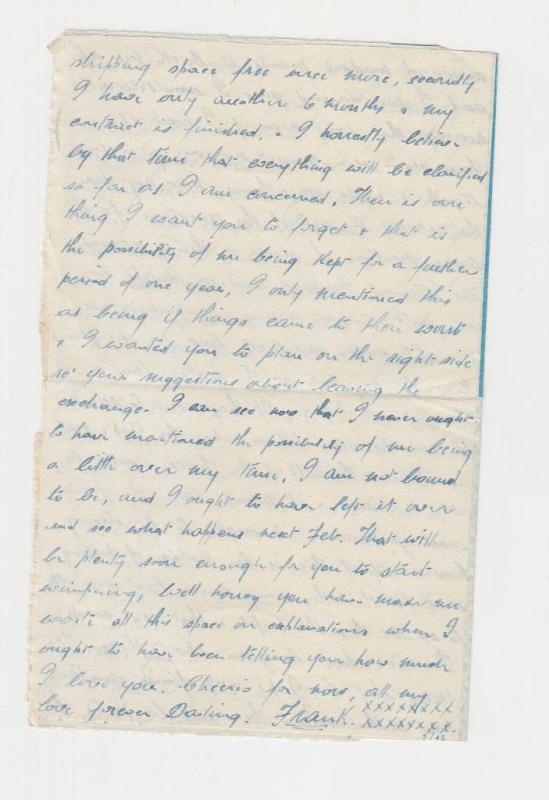 shipping space free once more, secondly
I have only another 6 months & my
contract is finished. & I honestly believe
by that time that everything will be clarified
so far as I am concerned. There is one
thing I want you to forget & that is
the possibility of me being kept for a further
period of one year, I only mentioned this
as being if things came to their worst
& I wanted you to plan on the right side
re' your suggestions about leaving the
exchange. I can see now that I never ought
to have mentioned the possibility of me being
a little over my time, I am not bound
to be, and I ought to have left it over
and see what happens next Feb. That will
be plenty soon enough for you to start
whimpering, Well honey you have made me
waste all this space on explanations when I
ought to have been telling you how much
I love you. Cheerio for now, all my
love forever Darling. Frank. xxxxxxxx
xxxxxxxx.